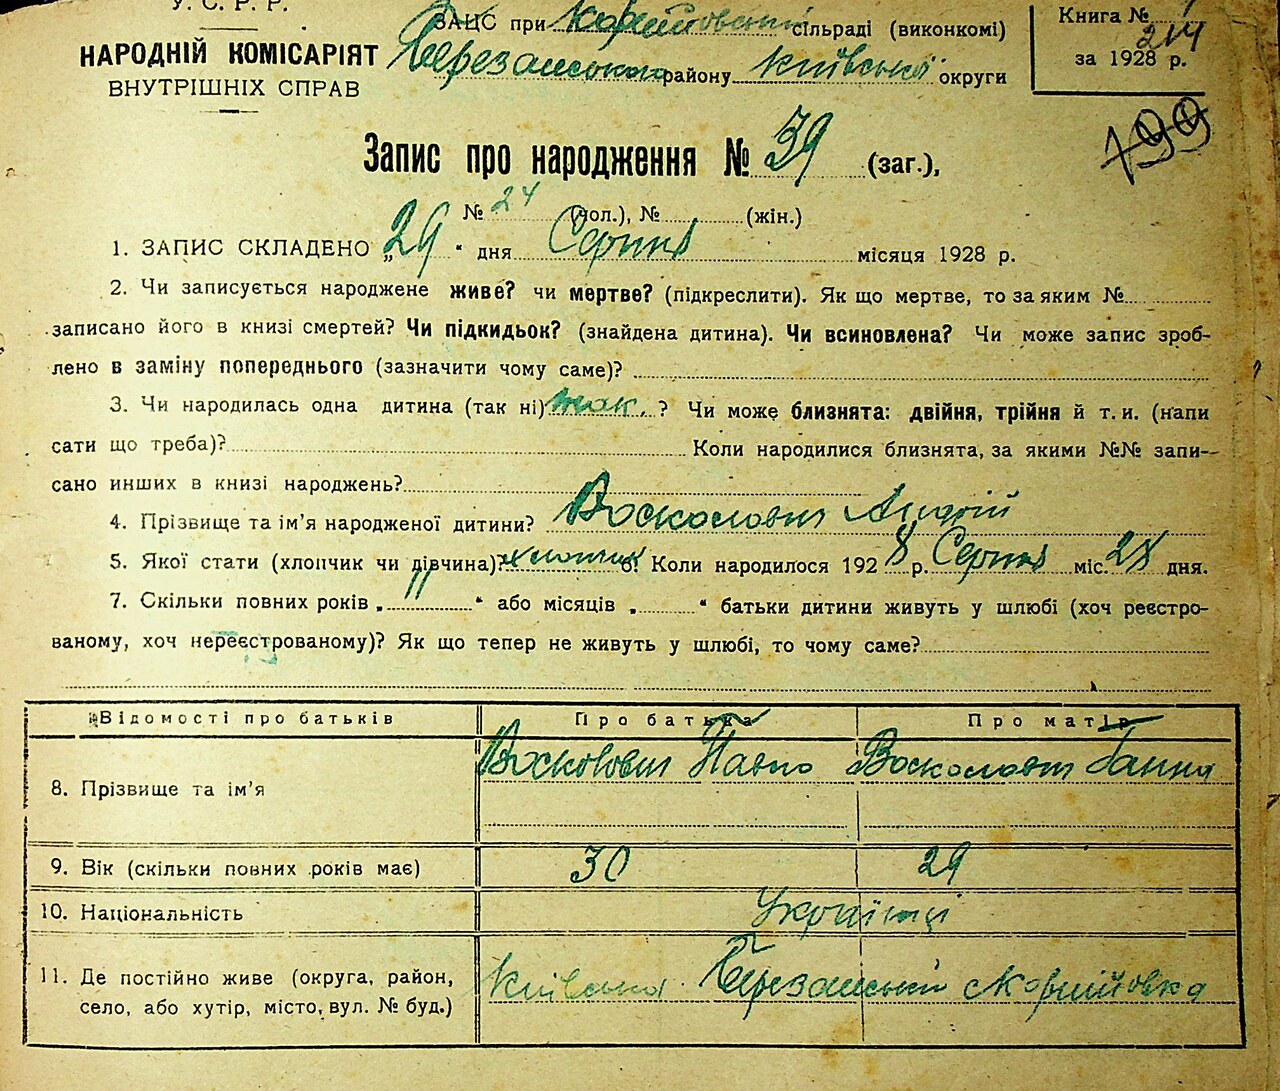 У. С. Р. Р.
НАРОДНІЙ КОМІСАРІЯТ
ВНУТРІШНІХ СПРАВ
ЗАЦС при сільраді (виконкомі)
Березанського району Київської округи
Книга №
за 1928 р.
214
199
Запис про народження № 39 (заг.),
№ 24 (чол.), № (жін.)
1. ЗАПИС СКЛАДЕНО „29“ дня Серпня місяця 1928 р.
2. Чи записується народжене живе? чи мертве? (підкреслити). Як що мертве, то за яким №
записано його в книзі смертей? Чи підкидьок? (знайдена дитина). Чи всиновлена? Чи може запис зроб-
лено в заміну попереднього (зазначити чому саме)?
3. Чи народилась одна дитина (так ні) так. ? Чи може близнята: двійня, трійня й т. и. (напи
сати що треба)? Коли народилися близнята, за якими №№ запи-
сано инших в книзі народжень?
4. Прізвище та ім’я народженої дитини? Восколович Андрій
5. Якої стати (хлопчик чи дівчина)? хлопчик 6. Коли народилося 1928 р. Серпня міс. 28 дня.
7. Скільки повних років „11“ або місяців „ “ батьки дитини живуть у шлюбі (хоч реєстро-
ваному, хоч нереєстрованому)? Як що тепер не живуть у шлюбі, то чому саме?
Відомості про батьків Про батька Про матір
8. Прізвище та ім’я Восколович Павло Восколович Ганна
9. Вік (скільки повних років має) 30 29
10. Національність Українці
11. Де постійно живе (округа, район,
село, або хутір, місто, вул. № буд.) Київська Березанський